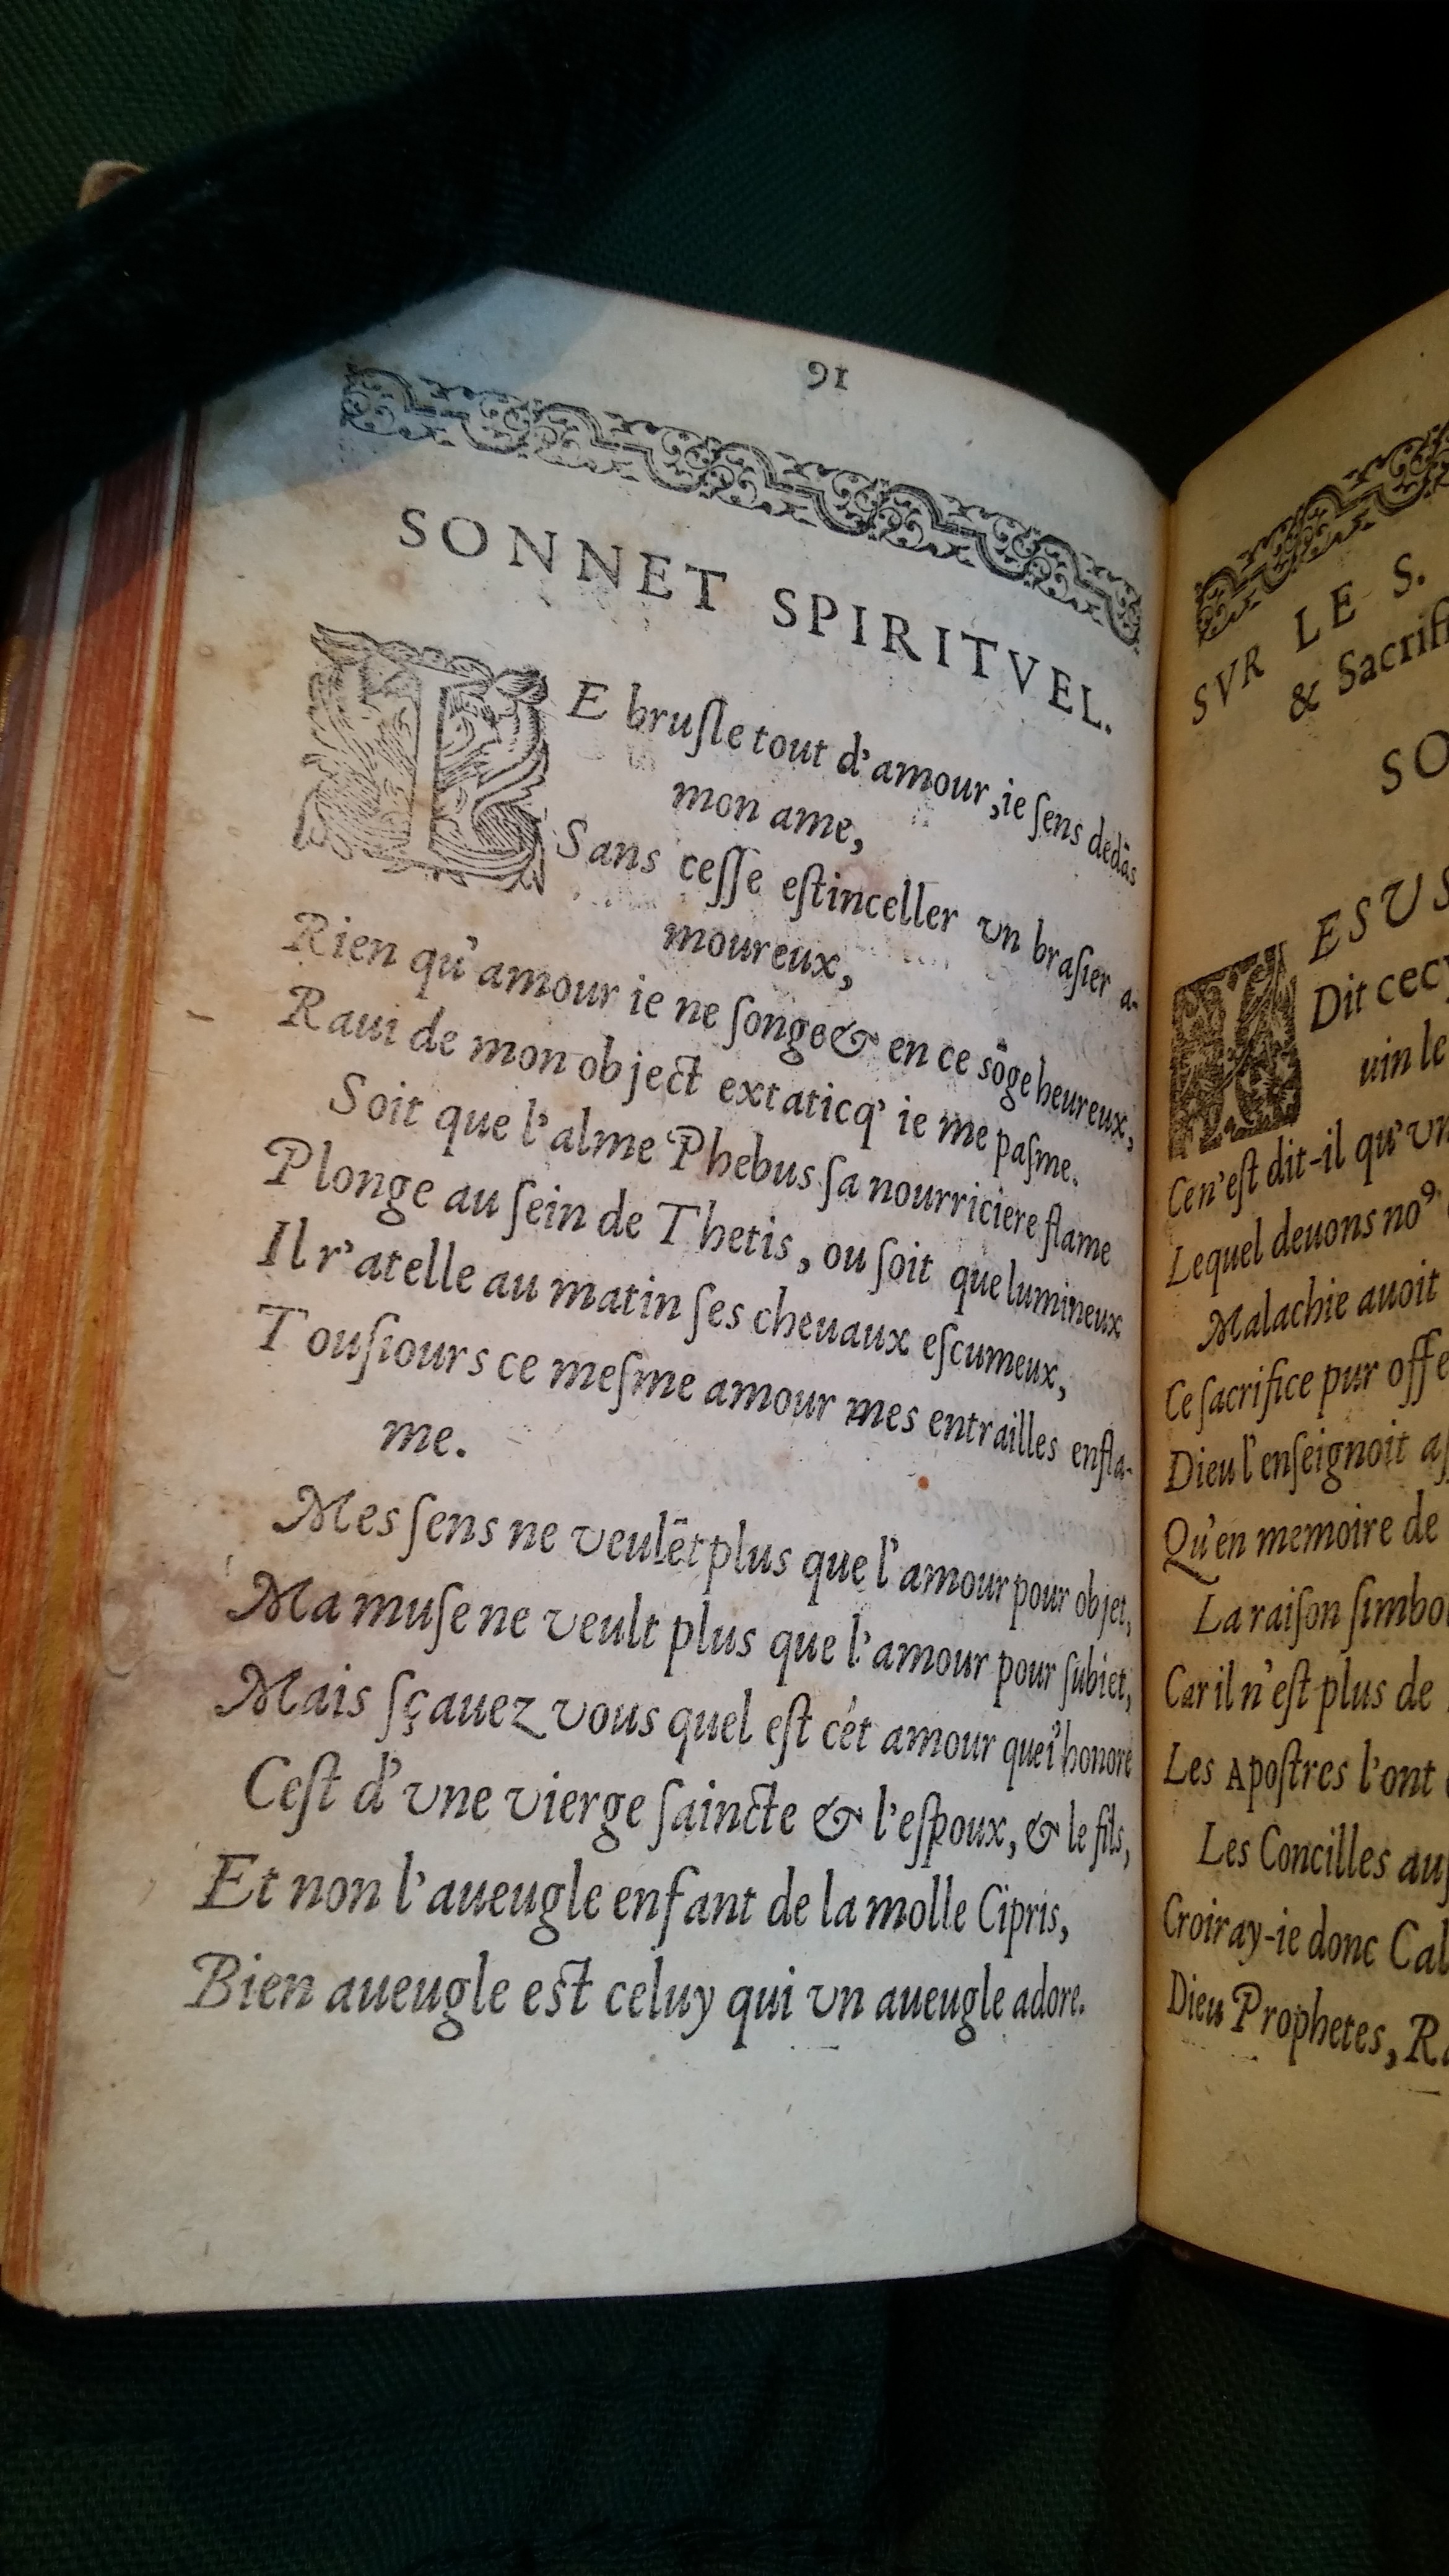 91
SONNET SPIRITVEL.
IE bruſle tout d'amour, ie ſens dedãs
mon ame,
Sans ceſſe eſtinceller vn braſier a-
moureux,
Rien qu'amour ie ne ſonge & en ce sõge heureux,
Raui de mon object extaticq' ie me paſme.
Soit que l'alme Phebus ſa nourriciere flame
Plonge au ſein de Thetis, ou ſoit que lumineux
Il r'atelle au matin ſes cheuaux eſcumeux,
Touſiours ce meſme amour mes entrailles enfla-
me.
Mes ſens ne veulẽt plus que l'amour pour objet,
Ma muſe ne veult plus que l'amour pour ſubiet,
Mais ſçauez vous quel eſt cét amour que i'honore
Ceſt d'vne vierge ſaincte & l'eſpoux, & le fils,
Et non l'aueugle enfant de la molle Cipris,
Bien aueugle est celuy qui vn aueugle adore.
SVR LE S.
& Sacrifi
SO
ESUS
Dit cecy
uin le
Ce n'eſt dit-il qu'vn
Lequel deuons noꝰ
Malachie auoit
Ce ſacrifice pur offe
Dieu l'enſeignoit aſ
Qu'en memoire de
La raiſon ſimbo
Car il n'eſt plus de
Les Apoſtres l'ont
Les Concilles auſ
Croiray-ie donc Cal
Dieu Prophetes, Ra